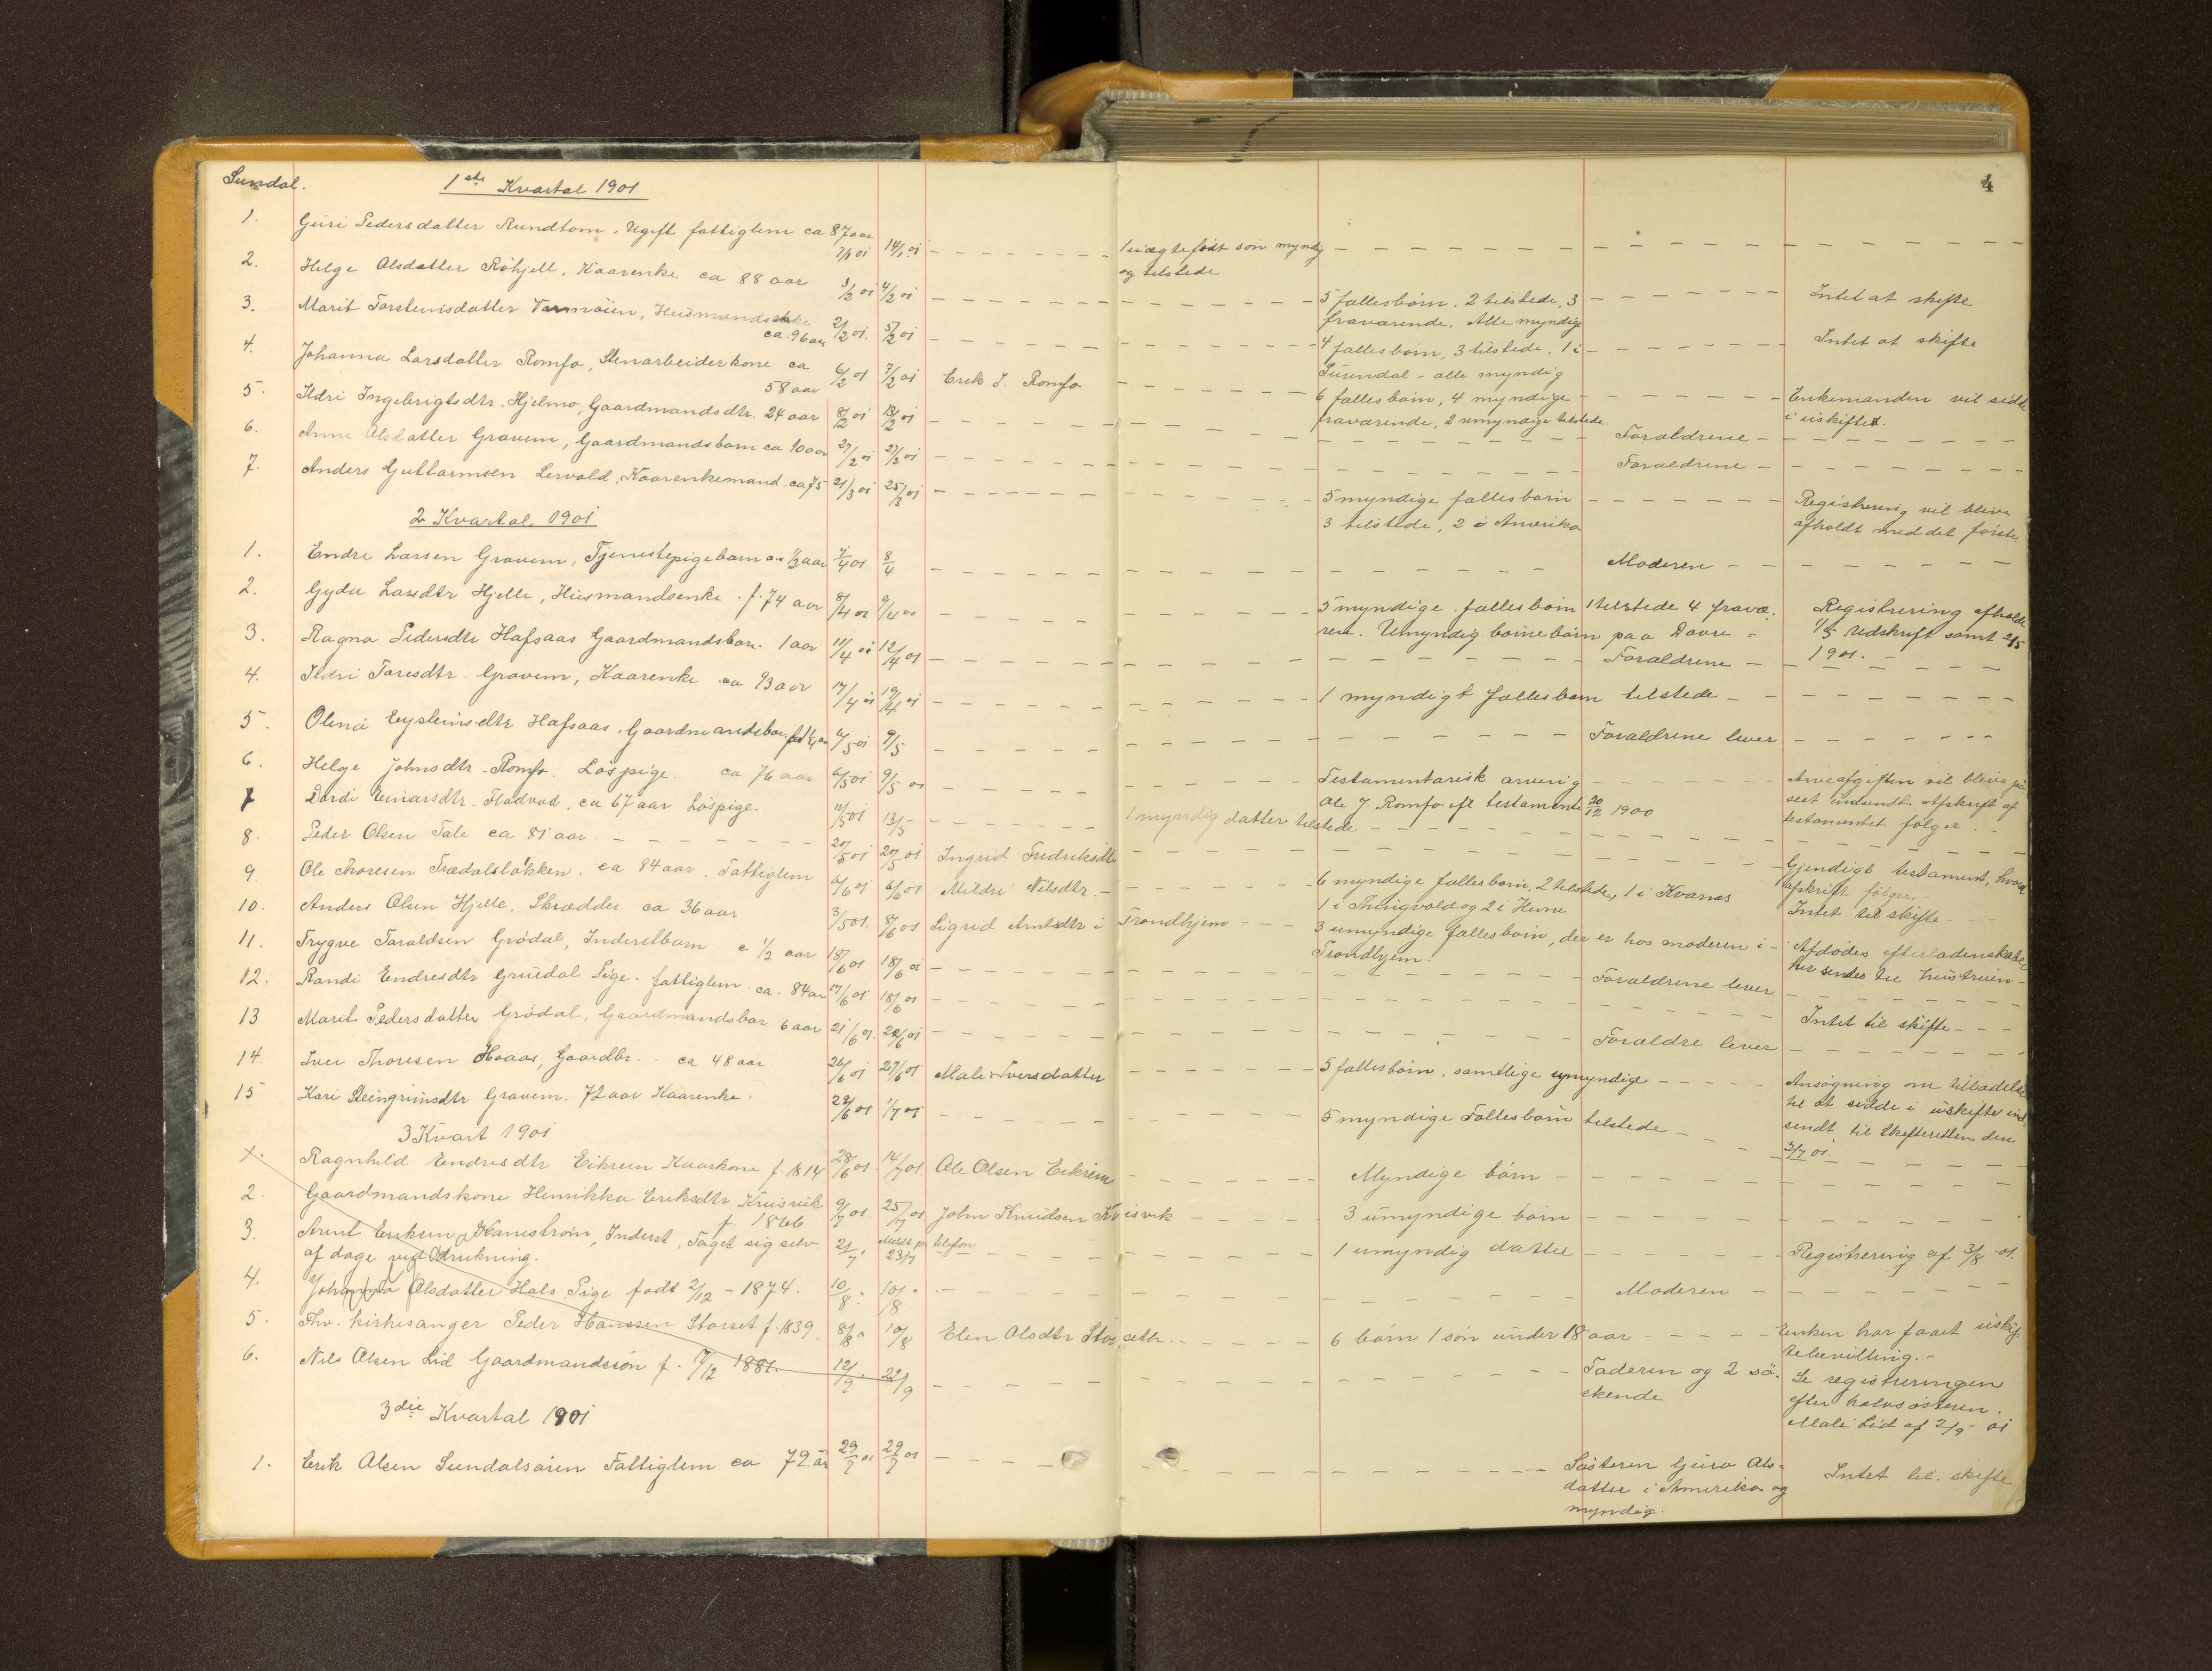 Sundal. 1ste Kvartal 1901 4
1. Guri Pedersdatter Rundtom, Ugift fattiglem ca 87 aar 7/1 01 14/1 01 1 uægte født søn myndig
og tilstede
2. Helge Olsdatter Röhjell, Kaarenke ca 88 aar 3/2 01 4/2 01 5 fællesbörn. 2 tilstede, 3 Intet at skifte
fraværende. Alle myndige
3. Marit Torsteinsdatter Husmandsenke 2/2 01 5/2 01 4 fællesbörn, 3 tilstede, 1 i Intet at skifte
ca. 96 aar Surendal - alle myndig
4. Johanna Larsdatter Romfo, Stenarbeiderkone ca 6/2 01 7/2 01 Erik J. Romfo 6 fællesbörn, 4 myndige Enkemanden vil sidde
58 aar fraværende, 2 umyndige tilstede. i uskiftet.
5. Ildri Ingebrigtsdtr. Hjelmo, Gaardmandsdtr. 24 aar 8/2 01 13/2 01 Forældrene
6. Anne Olsdatter Gravem, Gaardmandsbarn ca 10 aar 27/2 01 27/2 01 Forældrene
7. Anders Guttormsen Lervold, Kaarenkemand ca 75 21/3 01 25/3 01 5 myndige fællesbörn Registrering vil blive
3 tilstede, 2 i Amerika afholdt med det förste.
2 Kvartal 1901
1. Endre Larsen Gravem, Tjenestepigebarn 1/2 aar 7/4 01 8/4 Moderen
2. Gyda Larsdtr Hjelle, Husmandsenke f. 74 aar 8/4 01 9/4 01 5 myndige fællesbörn 1 tilstede 4 fravæ- Registrering afholdt
ren. Umyndig börnebörn paa Dovre 1/5 Udskrift samt 2/5
1901.
3. Ragna Pedersdtr Hafsaas Gaardmandsbarn. 1 aar 11/4 01 12/4 01 Forældrene
4. Ildri Toresdtr. Gravem, Kaarenke ca 93 aar 17/4 01 19/4 01 1 myndigt fællesbarn tilstede
5. Olena Eysteinsdtr Hafsaas, Gaardmandsbarn 6/5 01 9/5 Forældrene lever
6. Helge Johnsdtr. Romfo. Löspige. ca 76 aar 6/5 01 9/5 01 Testamentarisk arving Arveafgiften vil blive
Ole J. Romfo ifl testamente 20/12 1900 indsendt. Afskrift af
testamentet følger.
7 Dordi Einarsdtr. Fladvad, ca 67 aar Löspige. 11/5 01 13/5 1 myndig datter tilstede
8. Peder Olsen Tale ca 81 aar 20/5 01 20/5 01 Ingrid Fredriksdtr Gjendigt testament, hvoraf
afskrift følger.
9. Ole Thoresen Trædalsløkken. ca 84 aar. Fattiglem 6/6 01 6/6 01 Mildri Nilsdtr. 6 myndige fællesbörn, 2 tilstede, 1 i Kværnes Intet til skifte
1 i Thingvold og 2 i Hevne
10. Anders Olsen Hjelle, Skrædder ca 36 aar 3/5 01. 8/6 01 Sigrid Arntsdtr i Trondhjem 3 umyndige fællesbörn, der er hos moderen i Afdødes efterladenskaber
Trondhjem. her sendes til hustruen
11. Trygve Taraldsen Grödal, Inderstbarn c 1/2 aar 18/6 01 18/6 01 Forældrene lever
12. Randi Endresdtr Gruedal Pige - fattiglem ca. 84 aar 17/6 01 18/6 01 Intet til skifte
13 Marit Pedersdatter Grödal, Gaardmandsbar 6 aar 21/6 01 22/6 01 Forældre lever
14. Iver Thoresen Hoaas, Gaardbr. ca 48 aar 26/6 01 27/6 01 Mali Iversdatter 5 fællesbörn, samtlige umyndige Ansøgning om tilladelse
til at sidde i uskifte ind-
sendt til Skifteretten den
3/7 01.
15 Kari Steingrimsdtr Gravem. 72 aar Kaarenke. 28/6 01 1/7 01 5 myndige Fællesbörn tilstede
3 Kvart 1901
1. Ragnhild Endresdtr Eikrem Kaarkone f. 1814 28/6 01 14/7 01 Ole Olsen Eikrem Myndige börn
2. Gaardmandskone Henrikka Eriksdtr Kvisvik 9/7 01. 25/7 01 John Knudsen Kvisvik 3 umyndige börn
f. 1866
3. Arnt Eriksen Hamström, Inderst, Taget sig selv 21/7 Meldt pr telefon 23/7 1 umyndig datter Registrering af 3/8 01.
af dage ved drukning.
4. Johanna Olsdatter Hals Pige født 2/12 - 1874. 10/8 10/8 Moderen
5. Fhv. kirkesanger Peder Hanssen Storset f. 1839 8/8 10/8 Elen Olsdtr Storseth 6 börn 1 sön under 18 aar Enken har faaet uskif-
tebevilling.
6. Nils Olsen Lid Gaardmandssön f. 9/12 1881. 12/9 22/9 Faderen og 2 sö- Se registreringen
skende efter halvsøsteren
Mali Lid af 2/9 - 01
3die Kvartal 1901
1. Erik Olsen Sundalsören Fattiglem ca 72 år 29/7 01 29/7 01 Søsteren Guro Ols- Intet til skifte
datter i Amerika og
myndig.